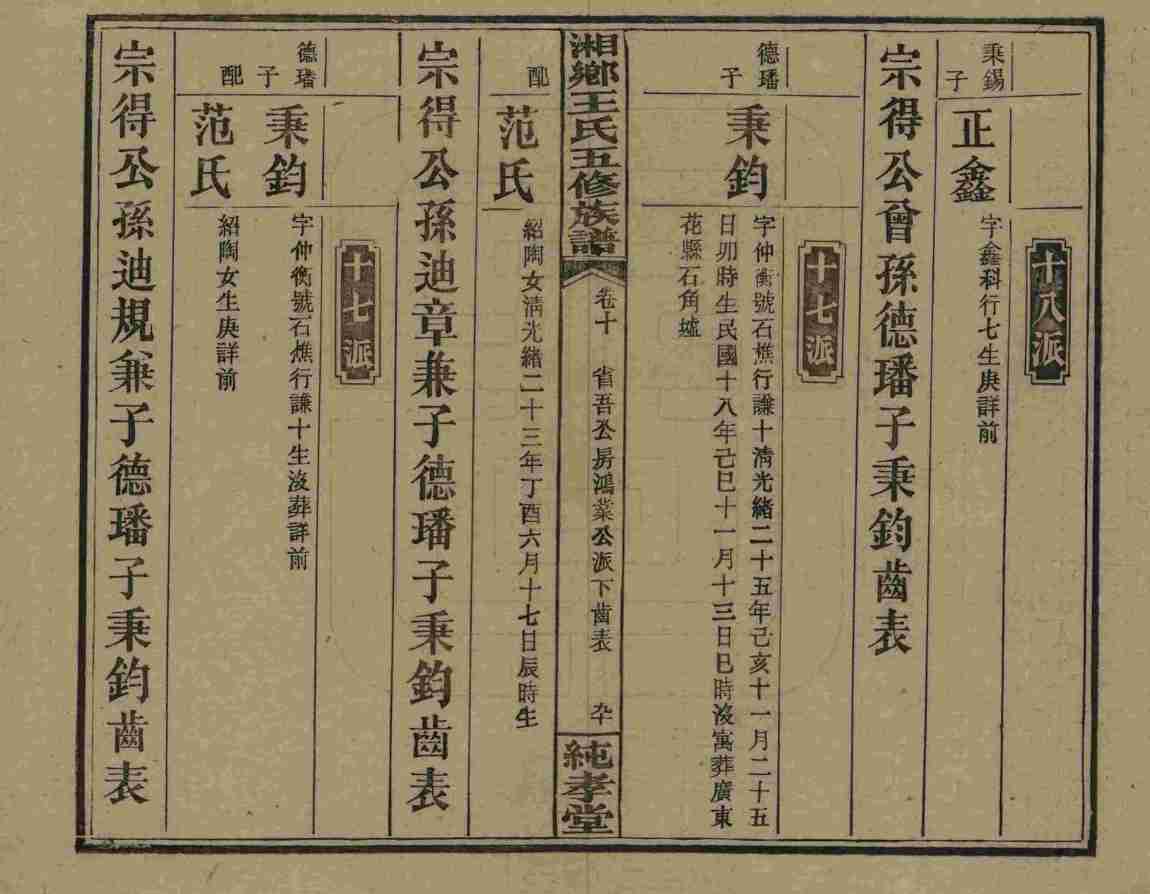 十八派
秉錫子
正鑫
字鑫科行七生庚詳前
宗得公曾孫德璠子秉鈞齒表
十七派
德璠子
秉鈞
字仲衡號石樵行謙十清光緒二十五年己亥十一月二十五
日卯時生民國十八年己巳十一月十三日巳時沒寓葬廣東
花縣石角墟
湘鄉王氏五修族譜
卷十
省吾公房鴻業公派下齒表
卆
純孝堂
配
范氏
紹陶女清光緒二十三年丁酉六月十七日辰時生
宗得公孫迪章兼子德璠子秉鈞齒表
十七派
德璠子
秉鈞
字仲衡號石樵行謙十生沒葬詳前
配
范氏
紹陶女生庚詳前
宗得公孫迪規兼子德璠子秉鈞齒表